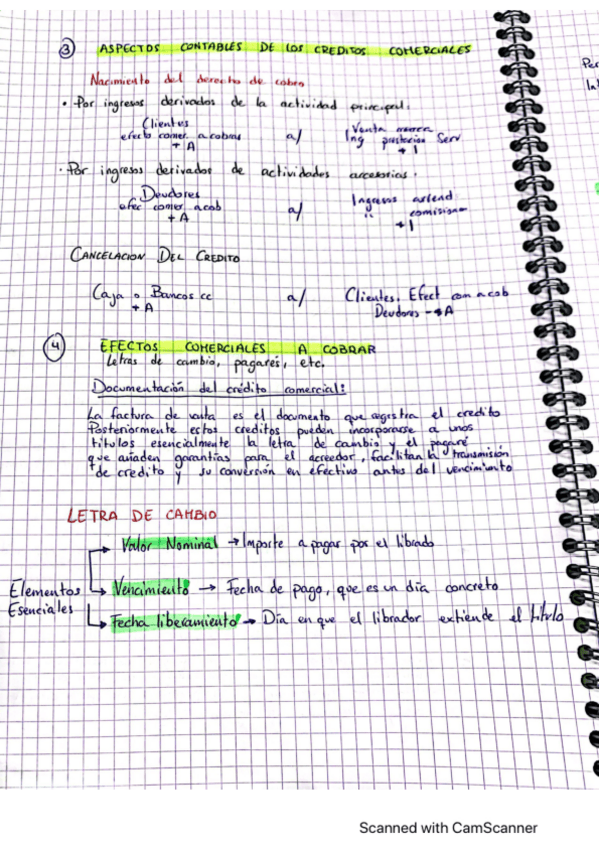 3 ASPECTOS CONTABLES DE LOS CREDITOS COMERCIALES
Nacimiento del derecho de cobro
• Por ingresos derivados de la actividad principal:
Clientes
efecto comer. a cobrar a/ Venta merca
+ A Ing prestacion Serv
+ I
· Por ingresos derivados de actividades accesorias.
Deudores
efec comer a cob a/ Ingresos arriend
+ A " comision
+ I
CANCELACION DEL CREDITO
Caja o Bancos cc a/ Clientes, Efect com a cob
+ A Deudores - A
4 EFECTOS COMERCIALES A COBRAR
Letras de cambio, pagarés, etc.
Documentación del crédito comercial:
La factura de venta es el documento que registra el credito
Posteriormente estos creditos pueden incorporarse a unos
titulos esencialmente la letra de cambio y el pagaré
que añaden garantías para el acreedor, facilitan la transmisión
de credito y su conversión en efectivo antes del vencimiento
LETRA DE CAMBIO
Valor Nominal → Importe a pagar por el librado
Elementos Esenciales
Vencimiento → Fecha de pago, que es un día concreto
Fecha liberamiento → Día en que el librador extiende el título
Per
Scanned with CamScanner